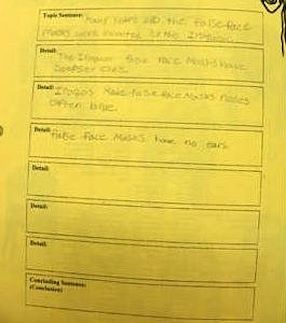 Topic Sentence: Many years ago the false face
masks were invented by the Iroquois.
Detail: The Iroquois false face masks have
deepset eyes.
Detail: Iroqois false face masks noses
often
Detail: False face masks have no ears
Detail:
Detail:
Detail:
Concluding Sentence:
(Conclusion)